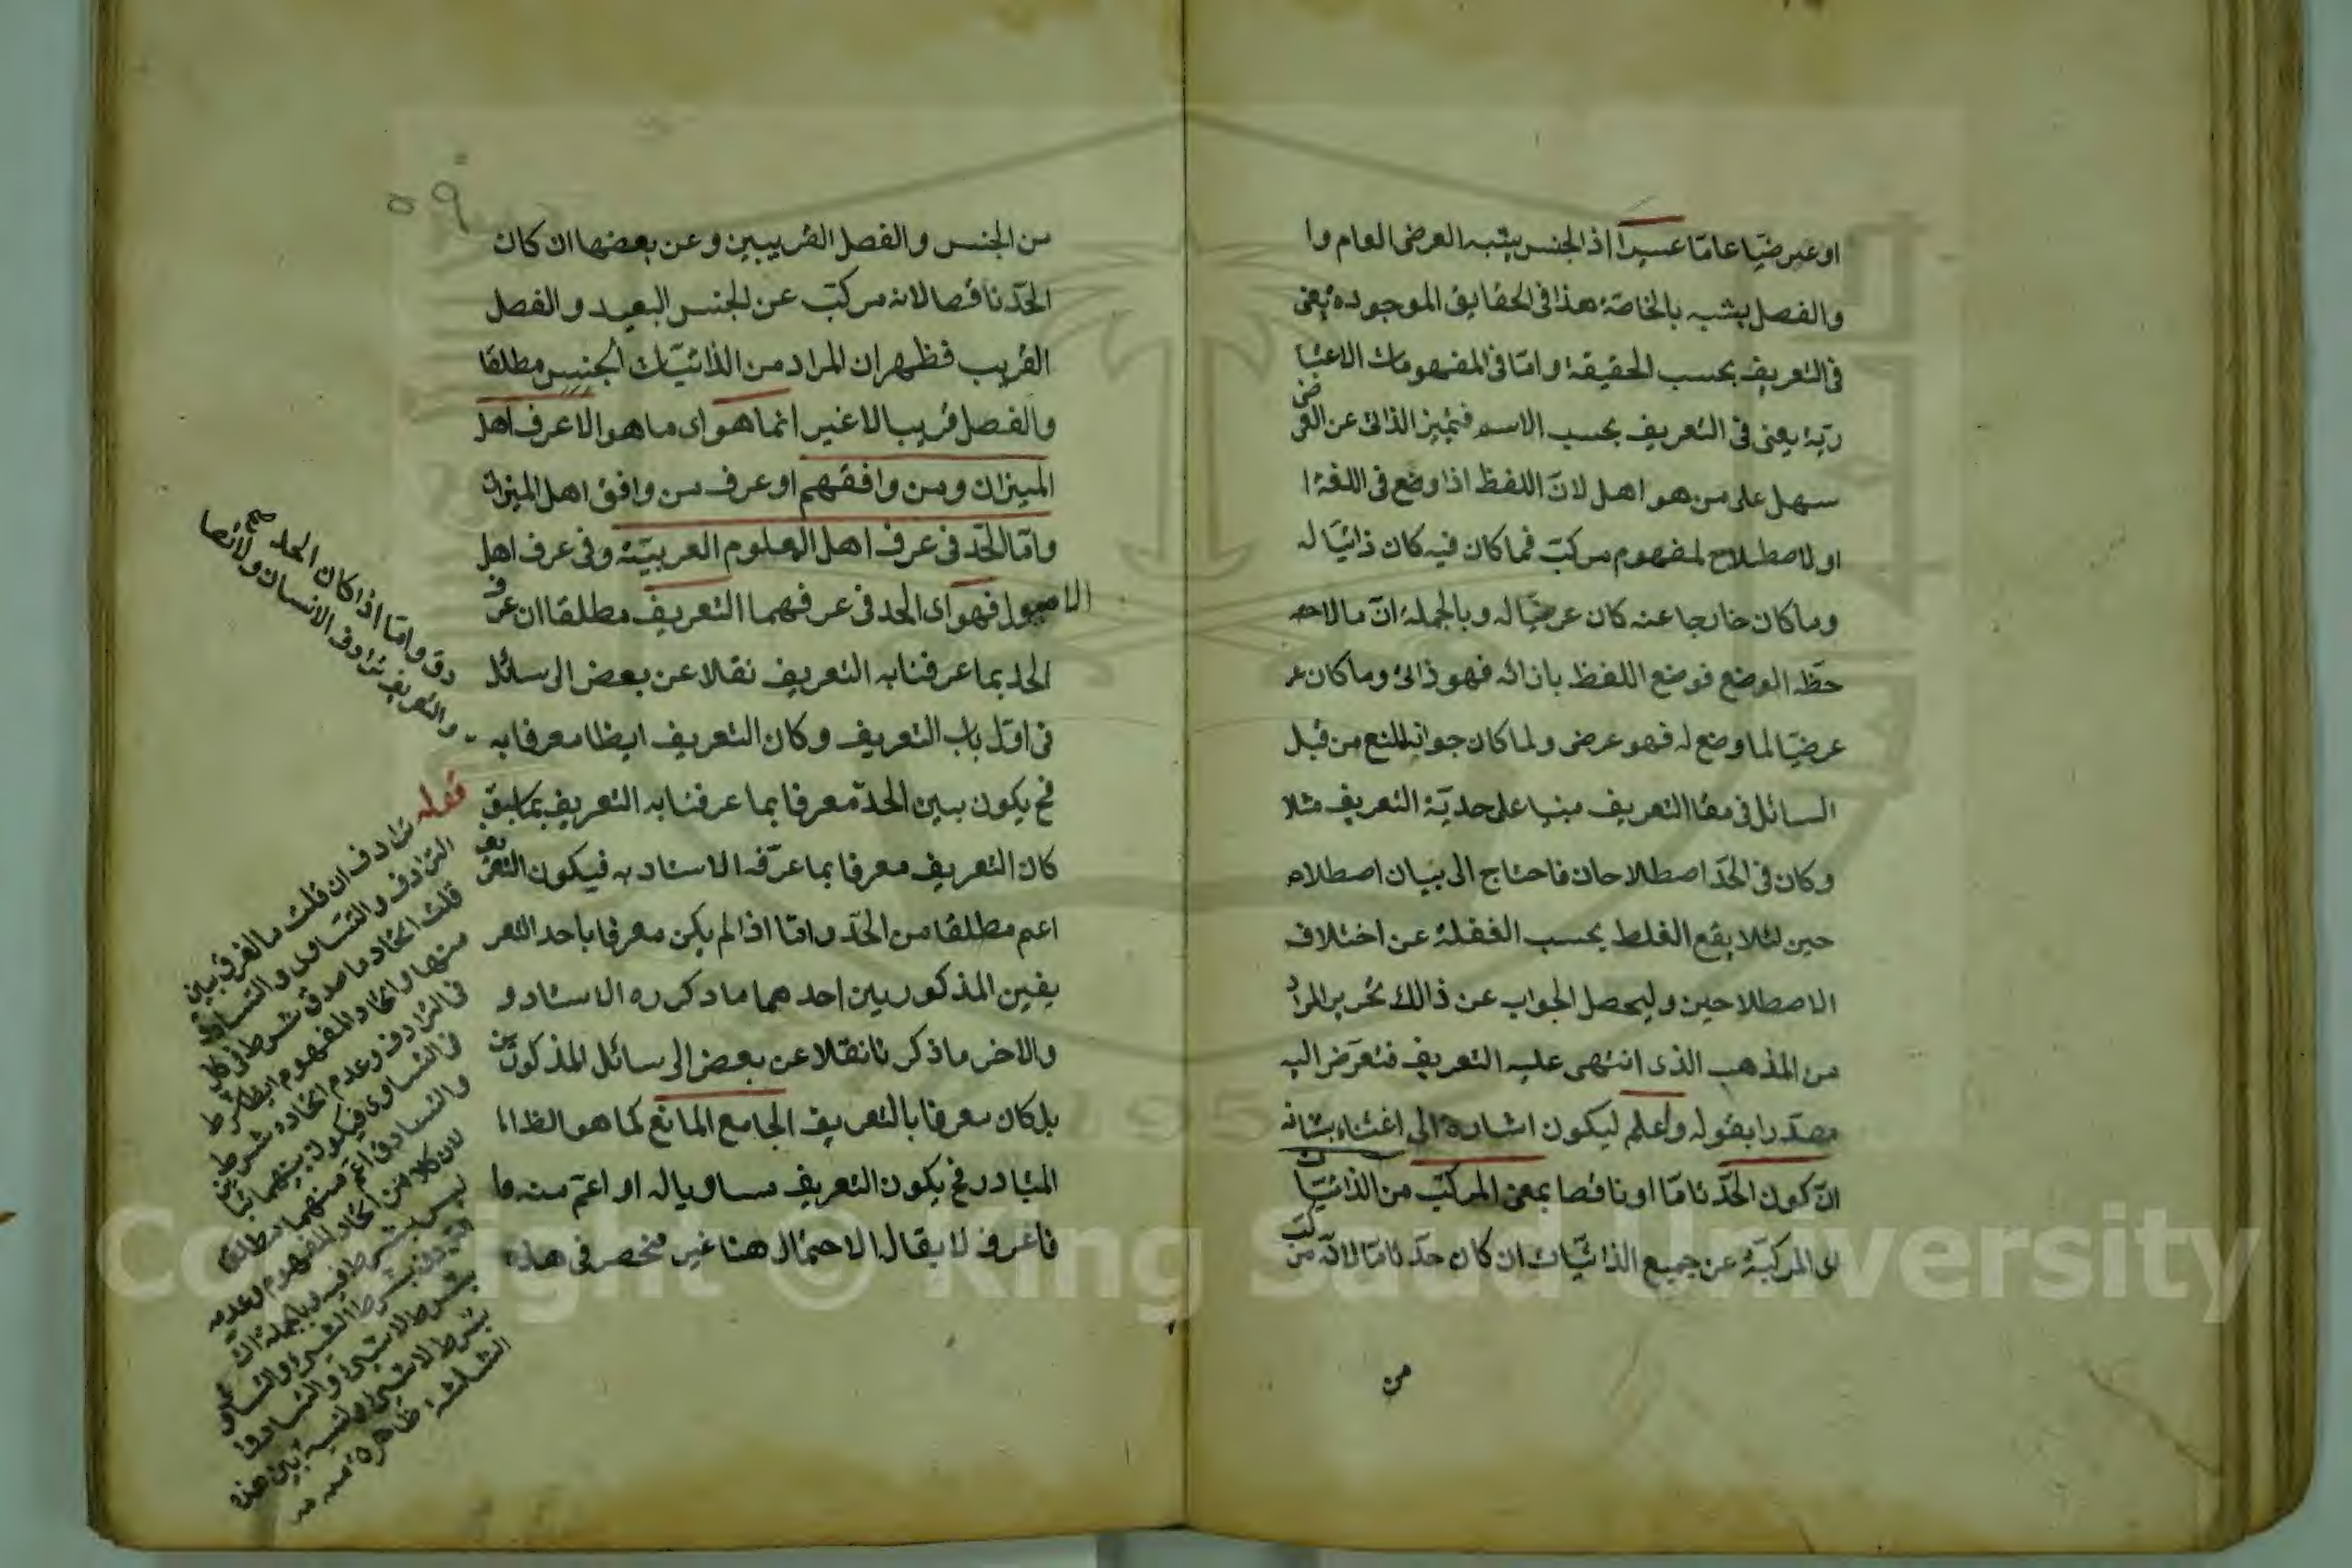 او عرضيا عاما عسيرا اذ الجنس يشبه العرض العام وا
والفصل يشبه بالخاصة هذا فى الحقايق الموجودة يعنى
فى التعريف بحسب الحقيقة واما فى المفهومات الاعتبا
رية يعنى فى التعريف بحسب الاسم فتميز الذاتى عن العر
ضى
سهل على من هو اهل لان اللفظ اذا وضع فى اللغة ا
او لاصطلاح لمفهوم مركب فما كان فيه كان ذاتيا له
وما كان خارجا عنه كان عرضيا له وبالجملة ان ما لاحه
حظه الوضع فوضع اللفظ بازائه فهو ذاتى وما كان عر
عرضيا لما وضع له فهو عرض ولما كان جوابه للمنع من قبل
السائل فى مقا التعريف مبنيا على حدية التعريف مثلا
وكان فى الحد اصطلاحان فاحتاج الى بيان اصطلاح
حين لئلا يقع الغلط بحسب الغفلة عن اختلاف
الاصطلاحين وليحصل الجواب عن ذالك تحرير المراد
من المذهب الذى انتهى عليه التعريف فتعرض اليه
مصدرا بقوله واعلم ليكون اشارة الى اعتناء بشانه
ان كون الحد تاما او ناقصا بمعنى المركب من الذاتيات
اى المركبة عن جميع الذاتيات ان كان حد تاما لانه مركب من
من
٥٩
من الجنس والفصل القريبين وعن بعضها ان كان
الحد ناقصا لانه مركب عن الجنس البعيد والفصل
القريب فظهر ان المراد من الذاتيات الجنس مطلقا
والفصل قريبا لا غير انما هو اى ما هو الا عرف اهل
الميزان ومن وافقهم او عرف من وافق اهل الميزان
واما الحد فى عرف اهل العلوم العربية وفى عرف اهل
الاصول فهو اى الحد فى عرفهما التعريف مطلقا ان عرف
الحد بما عرفنا به التعريف نقلا عن بعض الرسائل
فى اول باب التعريف وكان التعريف ايظا معرفا به
فح يكون بين الحد معرفا بما عرفنا به التعريف بما سبق
كان التعريف معرفا بما عرفه الاستاد به فيكون التعريف
اعم مطلقا من الحد واما اذا لم يكن معرفا باحد التعر
يفين المذكورين احدهما ما ذكره الاستاد و
والاخر ما ذكرنا نقلا عن بعض الرسائل المذكورين
بل كان معرفا بالتعريف الجامع المانع كما هو الظاا
المتبادر فح يكون التعريف مساويا له او اعم منه وا
فاعرف لا يقال الاحتمال هنا غير منحصر فى هذه
دق واما اذا كان الحد صح
والتعريف ترادف الانسان ولا نصا
قوله ترادف ان قلت ما الفرق بين
الترادف والتساوى والتساوق
قلت اتحاد ما صدق شرط فى كل
منها واتحاد المفهوم ايظا شرط
فى الترادف وعدم اتحاده شرط
فى التساوى فيكون بينهما تباين
والتساوق اعم منهما مطلقا
لان كلا من اتحاد المفهوم وعدمه
ليس بشرط فيه وبالجملة ان
الترادف بشرط الشئ والتساوى
بشرط لا شئ والتساوق
لا بشرط شئ والنسبة بين هذه
الثلاثة ظاهرة منه
Copyright © King Saud University
1957